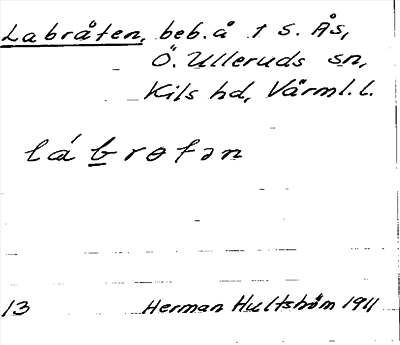 Labråten, beb. å 1 s. Ås,
Ö. Ulleruds sn,
Kils hd, Värml. l.
lábrɵtən
13 Herman Hultström 1911